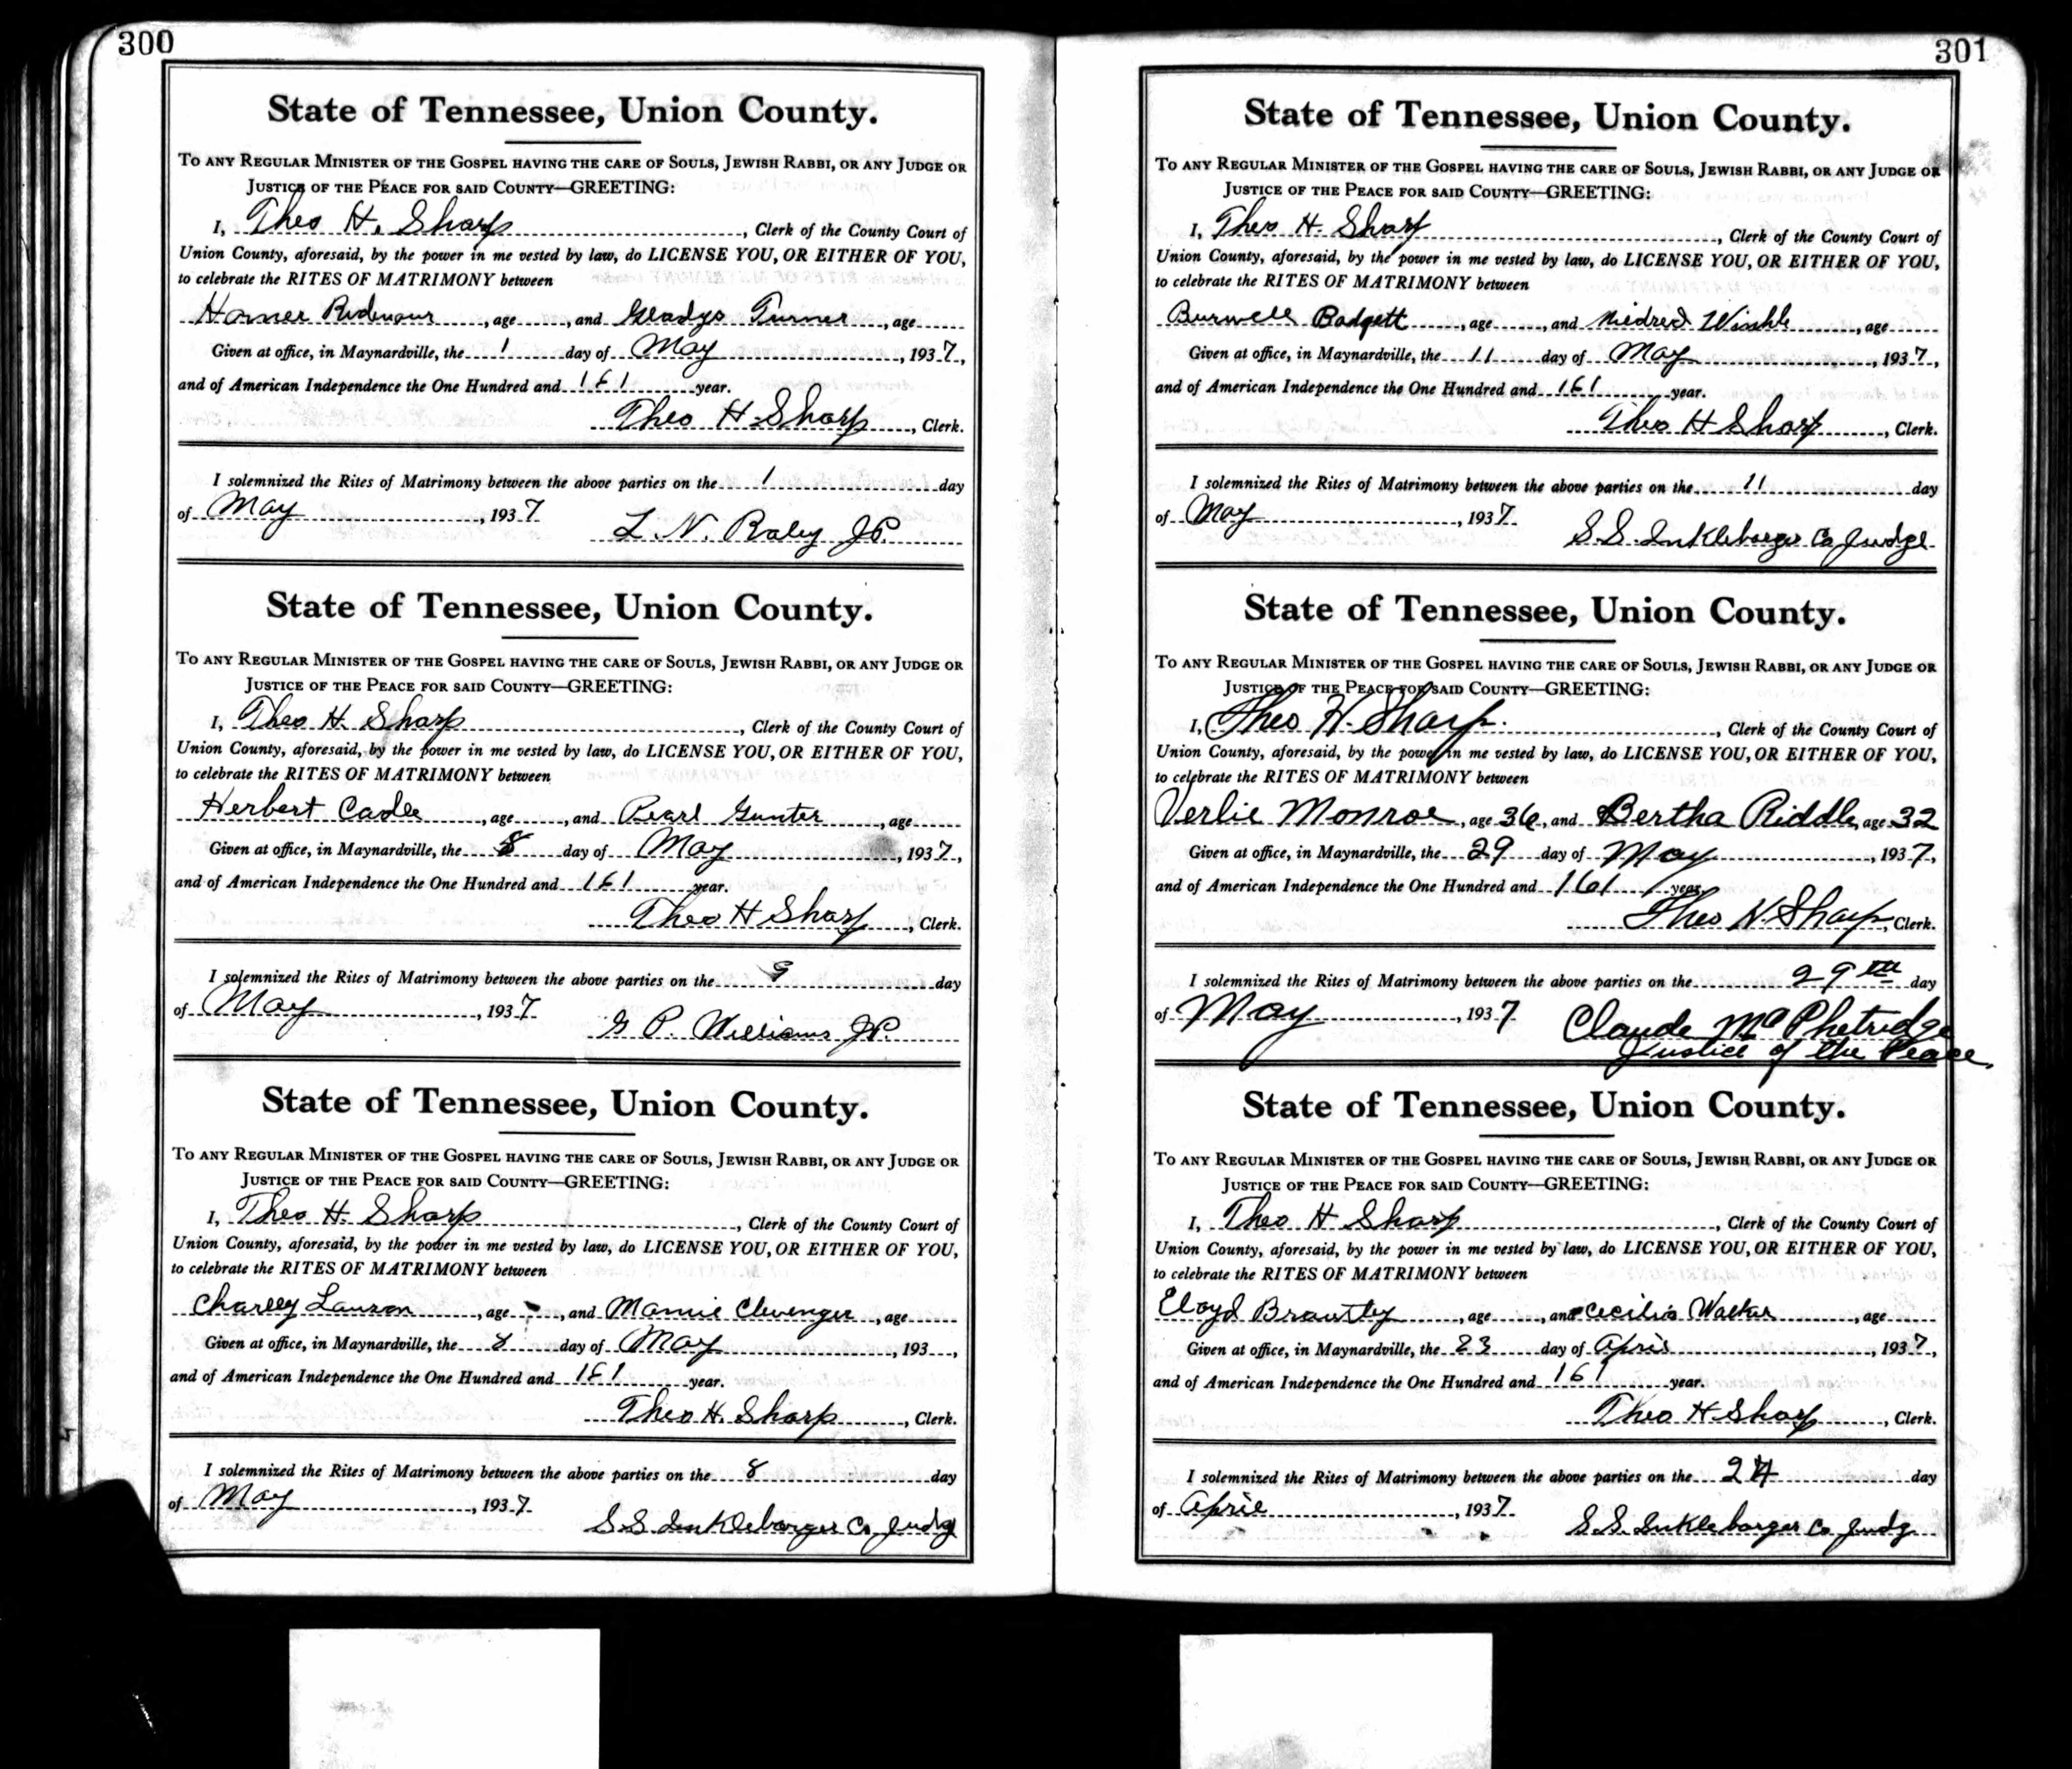 300
State of Tennessee, Union County.
To any Regular Minister of the Gospel having the care of Souls, Jewish Rabbi, or any Judge or
Justice of the Peace for said County—GREETING:
I, Theo H. Sharp, Clerk of the County Court of
Union County, aforesaid, by the power in me vested by law, do LICENSE YOU, OR EITHER OF YOU,
to celebrate the RITES OF MATRIMONY between
Homer Ridenour, age, and Gladys Turner, age
Given at office, in Maynardville, the 1 day of May, 1937,
and of American Independence the One Hundred and 161 year.
Theo H Sharp, Clerk.
I solemnized the Rites of Matrimony between the above parties on the 1 day
of May, 1937
L. N. Raley J.P.
State of Tennessee, Union County.
To any Regular Minister of the Gospel having the care of Souls, Jewish Rabbi, or any Judge or
Justice of the Peace for said County—GREETING:
I, Theo H. Sharp, Clerk of the County Court of
Union County, aforesaid, by the power in me vested by law, do LICENSE YOU, OR EITHER OF YOU,
to celebrate the RITES OF MATRIMONY between
Herbert Cadle, age, and Pearl Gunter, age
Given at office, in Maynardville, the 8 day of May, 1937,
and of American Independence the One Hundred and 161 year.
Theo H Sharp, Clerk.
I solemnized the Rites of Matrimony between the above parties on the 9 day
of May, 1937
G P. Williams J.P.
State of Tennessee, Union County.
To any Regular Minister of the Gospel having the care of Souls, Jewish Rabbi, or any Judge or
Justice of the Peace for said County—GREETING:
I, Theo H. Sharp, Clerk of the County Court of
Union County, aforesaid, by the power in me vested by law, do LICENSE YOU, OR EITHER OF YOU,
to celebrate the RITES OF MATRIMONY between
Charley Lawson, age, and Mamie Clevenger, age
Given at office, in Maynardville, the 8 day of May, 193,
and of American Independence the One Hundred and 161 year.
Theo H. Sharp, Clerk.
I solemnized the Rites of Matrimony between the above parties on the 8 day
of May, 1937.
S.S. Inklebarger Co. Judg
301
State of Tennessee, Union County.
To any Regular Minister of the Gospel having the care of Souls, Jewish Rabbi, or any Judge or
Justice of the Peace for said County—GREETING:
I, Theo H. Sharp, Clerk of the County Court of
Union County, aforesaid, by the power in me vested by law, do LICENSE YOU, OR EITHER OF YOU,
to celebrate the RITES OF MATRIMONY between
Burwell Badgett, age, and Mildred, age
Given at office, in Maynardville, the 11 day of May, 1937,
and of American Independence the One Hundred and 161 year.
Theo H Sharp, Clerk.
I solemnized the Rites of Matrimony between the above parties on the 11 day
of May, 1937.
S.S. Inklebarger Co Judge
State of Tennessee, Union County.
To any Regular Minister of the Gospel having the care of Souls, Jewish Rabbi, or any Judge or
Justice of the Peace for said County—GREETING:
I, Theo H. Sharp., Clerk of the County Court of
Union County, aforesaid, by the power in me vested by law, do LICENSE YOU, OR EITHER OF YOU,
to celebrate the RITES OF MATRIMONY between
Verlie Monroe, age 36, and Bertha Riddle, age 32
Given at office, in Maynardville, the 29 day of May, 1937,
and of American Independence the One Hundred and 161 year.
Theo H. Sharp, Clerk.
I solemnized the Rites of Matrimony between the above parties on the 29th day
of May, 1937
Claude McPhetridge
Justice of the Peace.
State of Tennessee, Union County.
To any Regular Minister of the Gospel having the care of Souls, Jewish Rabbi, or any Judge or
Justice of the Peace for said County—GREETING:
I, Theo H Sharp, Clerk of the County Court of
Union County, aforesaid, by the power in me vested by law, do LICENSE YOU, OR EITHER OF YOU,
to celebrate the RITES OF MATRIMONY between
Lloyd Brantley, age, and Cecilia Walker, age
Given at office, in Maynardville, the 23 day of April, 1937,
and of American Independence the One Hundred and 161 year.
Theo H Sharp, Clerk.
I solemnized the Rites of Matrimony between the above parties on the 24 day
of April, 1937.
S.S. Inklebarger Co Judg